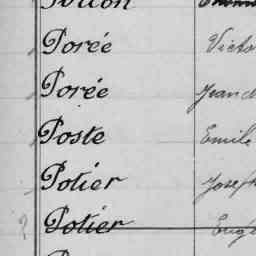 Porée Victo
Porée Jean
Poste Emile
Potier Joseph
? Potier Eug